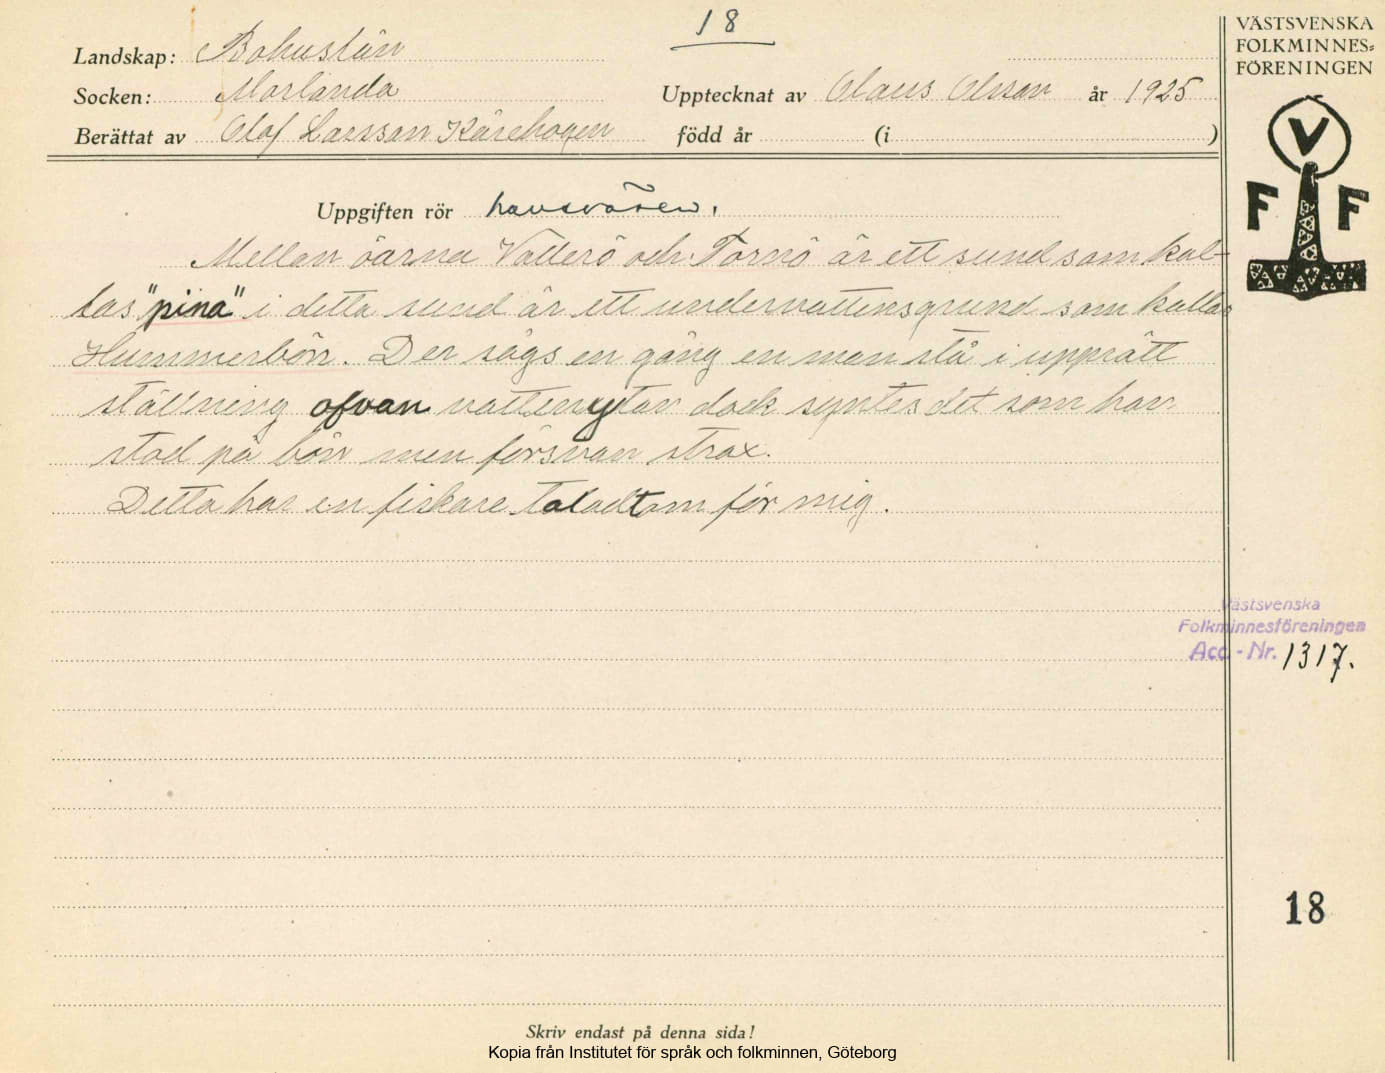 18
VÄSTSVENSKA
FOLKMINNES=
FÖRENINGEN
V
F F
Landskap: Bohuslän
Socken: Morlanda
Upptecknat av Olaus Olsson år 1925
Berättat av Olof Larsson Kårehogen född år (i )
Uppgiften rör havsväsen.
Mellan öarna Vallerö och Tornö är ett sund som kal-
las "pina" i detta sund är ett undervattensgrund som kallas
Hummerbön. Der sågs en gång en man stå i upprätt
ställning ofvan vattenytan dock syntes det som han
stod på bön men försvan strax.
Detta har en fiskare taladt om för mig.
Västsvenska
Folkminnesföreningen
Acc.-Nr. 1317.
18
Skriv endast på denna sida!
Kopia från Institutet för språk och folkminnen, Göteborg